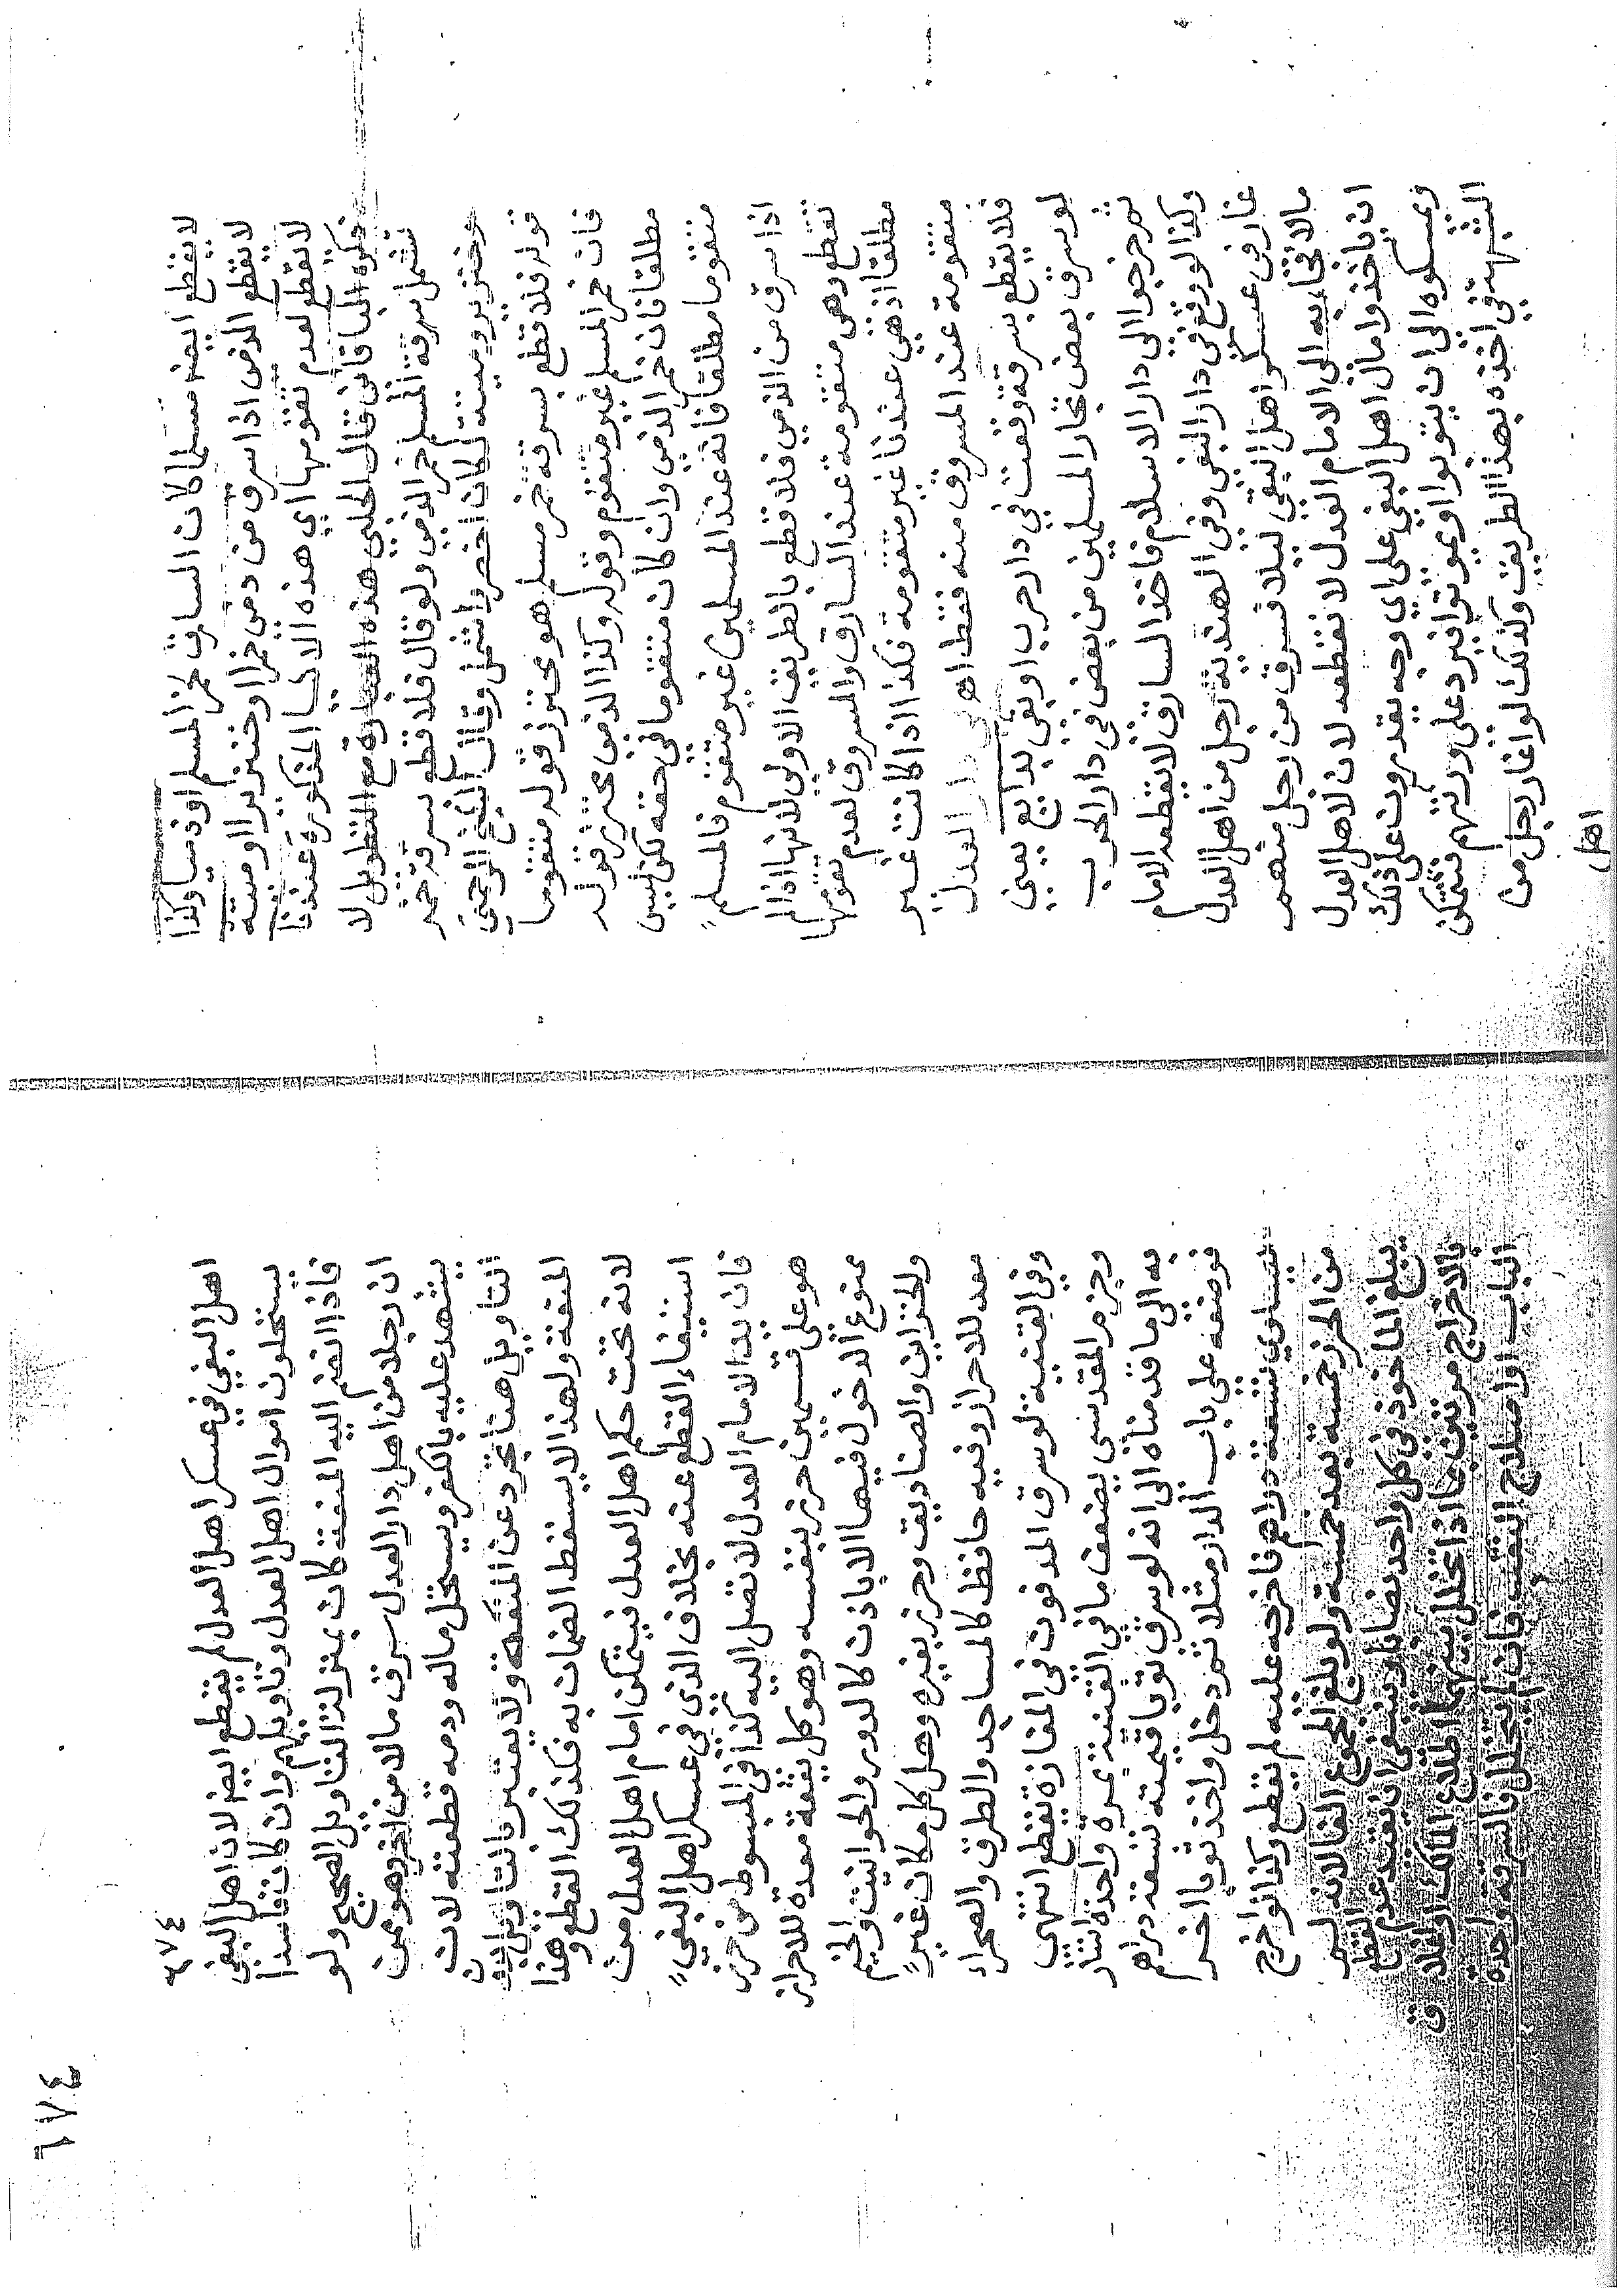 لا يقطع ايضا مسلما كان السارق خمر المسلم او ذميا وكذا
لا يقطع الذمي اذا سرق من ذمي خمرا او خنزيرا او ميتة
لا يقطع لعدم تقومها اي هذه الاشيا المذكورة عندنا
ذكره الباقاني قال الحلبي هذه العبارة مع التطويل لا
تشمل سرقة المسلم خمر الذمي ولو قال فلا قطع بسرقة خمر
وخنزير وميتة لكان اخصر واشمل وقال الشيخ الرحمتي
قوله فلا قطع بسرقة خمر مسلم هو محترز قوله متقوما
فان خمر المسلم غير متقوم وقوله وكذا الذمي محترز قوله
مطلقا فان خمر الذمي وان كان متقوما في حقه لكن ليس
متقوما مطلقا فانه عند المسلمين غير متقوم فالمسلم
اذا سرق من الذمي فلا قطع بالطريق الاولى لانها اذا لم
تقطع وهي متقومة عند السارق والمسروق لعدم تقومها
مطلقا اذ هي عندنا غير متقومة فكذا اذا كانت غير
متقومة عند المسروق منه فقط اهـ في دار العدل
فلا يقطع بسرقة وقعت في دار حرب او بغي بدايع يعني
لو سرق بعض تجار المسلمين من بعض في دار الحرب
ثم خرجوا الى دار الاسلام فاخذ السارق لا يقطعه الامام
وكذا لو وقع في دار البغي وفي الهندية رجل من اهل العدل
غار في عسكر اهل البغي ليلا فسرق من رجل منهم
مالا فجاء به الى الامام العدل لا نقطعه لان لاهل العدل
ان ياخذوا مال اهل البغي على اي وجه يقدرون على ذلك
ويمسكوه الى ان يتوبوا او يموتوا فيرد على ورثتهم فتتمكن
الشبهة في اخذه بهذا الطريق وكذلك لو اغار رجل من
اهل
٦٧٤
٦٧٤
اهل البغي في عسكر اهل العدل لم يقطع ايضا لان اهل البغي
يستحلون اموال اهل العدل وتاويلهم وان كان فاسدا
فاذا انضم اليه المنعة كان بمنزلة التاويل الصحيح ولو
ان رجلا من اهل دار العدل سرق مالا من اخر وهو ممن
يشهد عليه بالكفر ويستحل ماله ودمه قطعته لان
التاويل هنا تجرد عن المنعة ولا يعتبر بالتاويل بدون
المنعة ولهذا لا يسقط الضمان به فكذلك القطع وهذا
لانه تحت حكم اهل العدل فيتمكن امام اهل العدل من
استيفاء القطع عنه بخلاف الذي في عسكر اهل البغي
فان يد الامام العدل لا تصل اليه كذا في المبسوط من حرز
هو على قسمين حرز بنفسه وهو كل بقعة معدة للاحراز
ممنوع الدخول فيها الا باذن كالدور والحوانيت والخيم
والخزاين والصناديق وحرز بغيره وهو كل مكان غير
معد للاحراز وفيه حافظ كالمساجد والطرق والصحراء
وفي القنية لو سرق المدفون في المفازة يقطع انتهى
وجزم المقدسي بضعف ما في القنية بمرة واحدة اشار
به الى ما قدمناه الى انه لو سرق ثوبا قيمته تسعة دراهم
فوضعه على باب الدار مثلا ثم دخل واخذ ثوبا اخر
يساوي تسعة دراهم فاخرجه علنه لم يقطع وكذا لو اخرج
من الحرز خمسة بعد خمسة ولو بلغ المجموع الفا لانه لم
يبلغ الماخوذ في كل واحد نصابا وينبغي ان يقيد عدم القطع
بالاخراج مرتين بما اذا تخلل بينهما اطلاع المالك او اغلاق
الباب او اصلاح النقب فان لم يتخلل فالسرقة واحدة